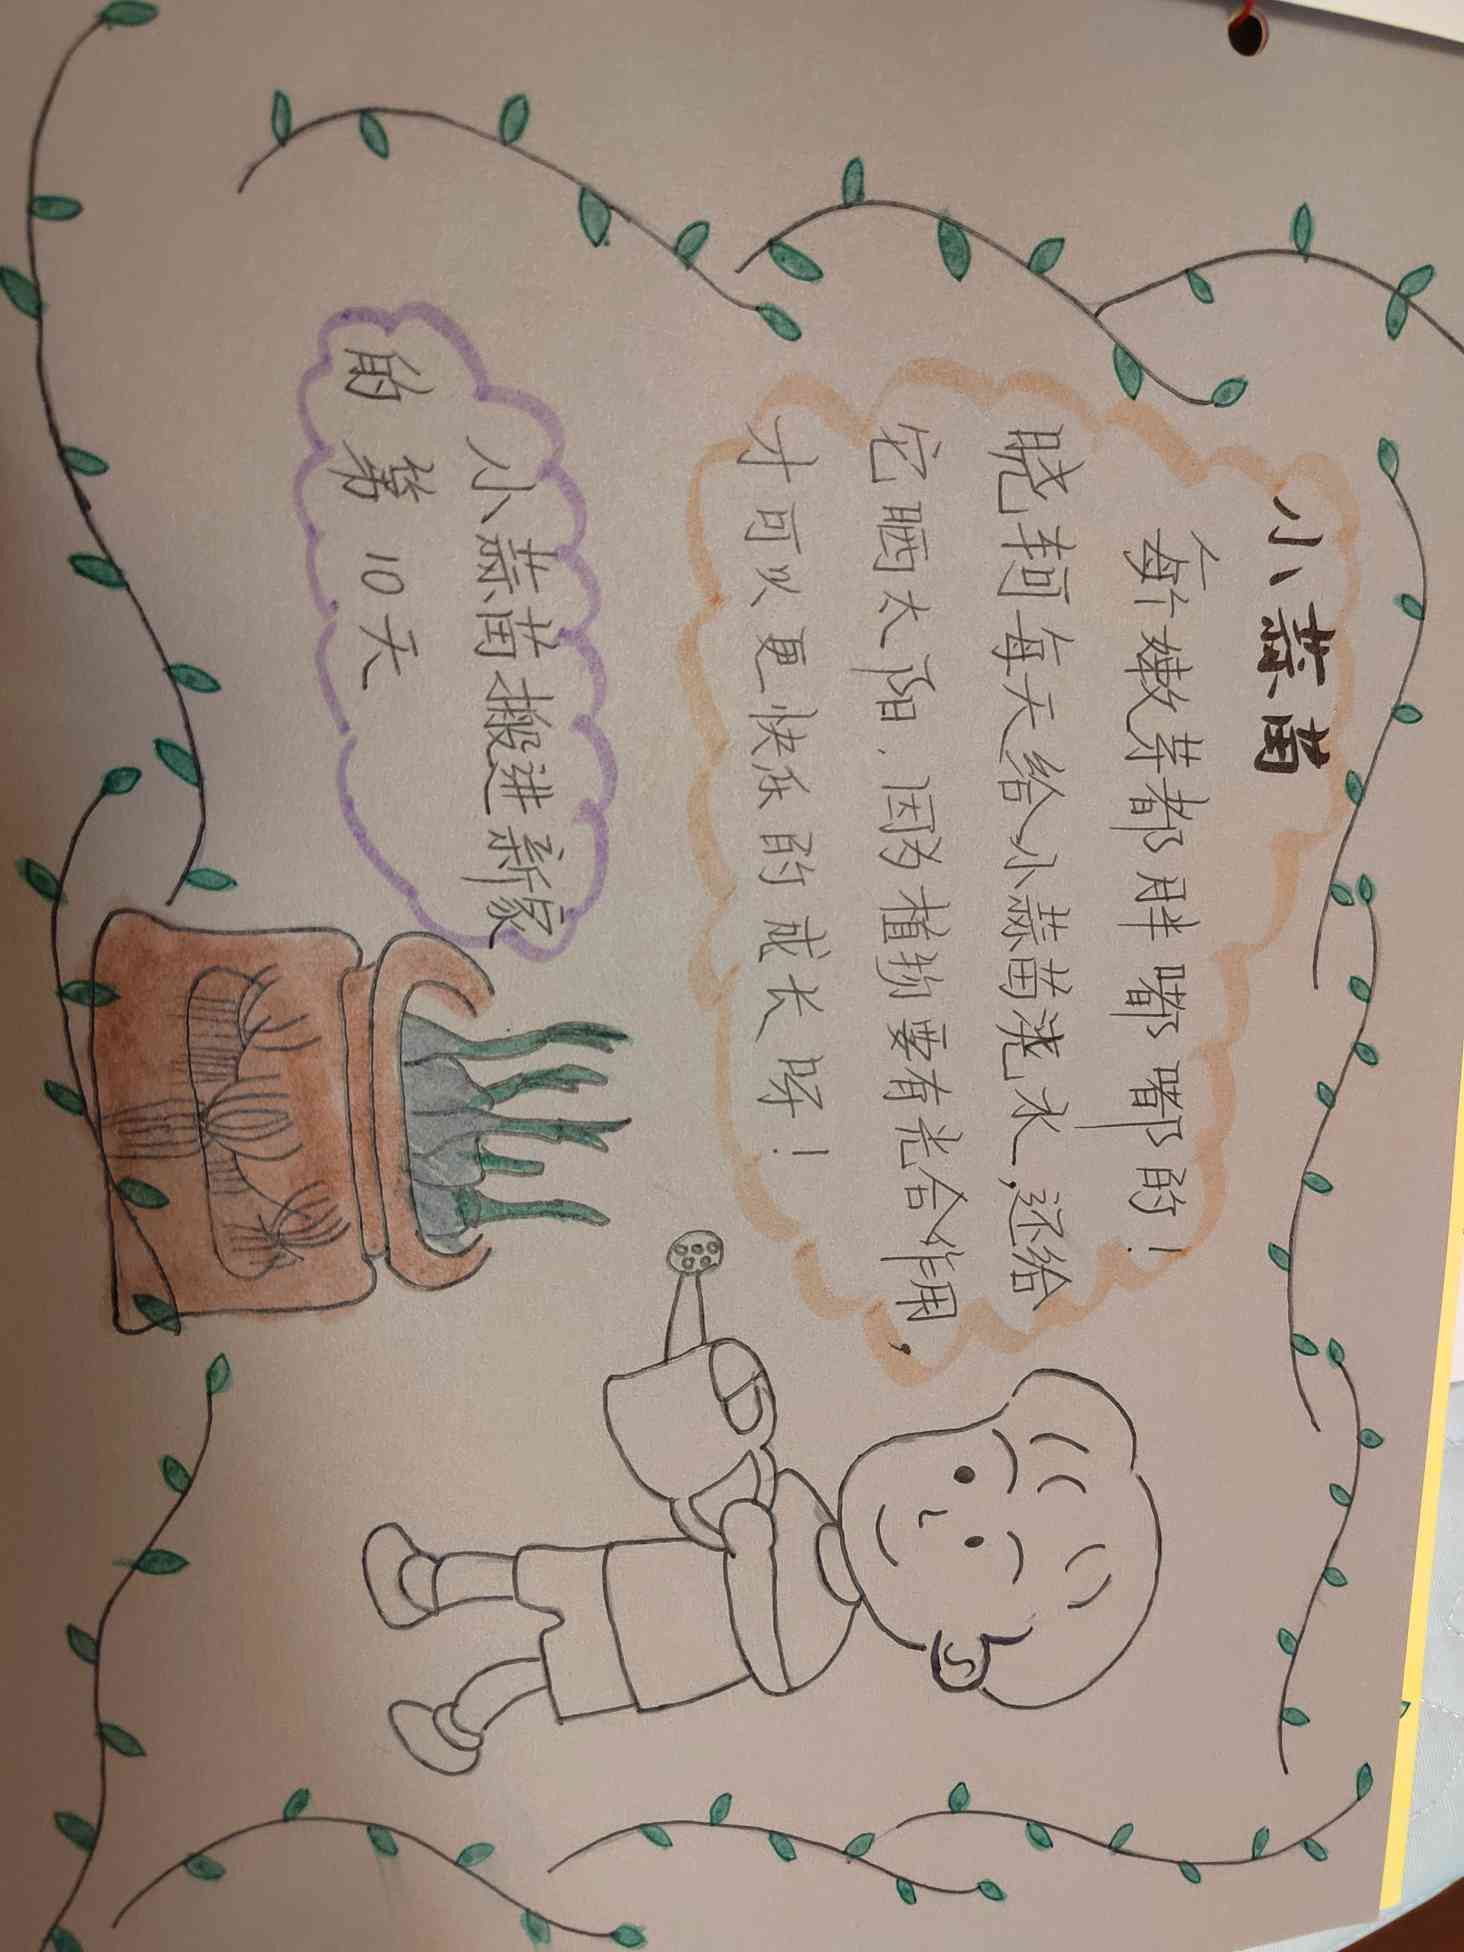 小蒜苗
每个嫩芽都胖嘟嘟的！
晓轲每天给小蒜苗浇水，还给
它晒太阳．因为植物要有光合作用，
才可以更快乐的成长呀！
小蒜苗搬进新家
的第10天